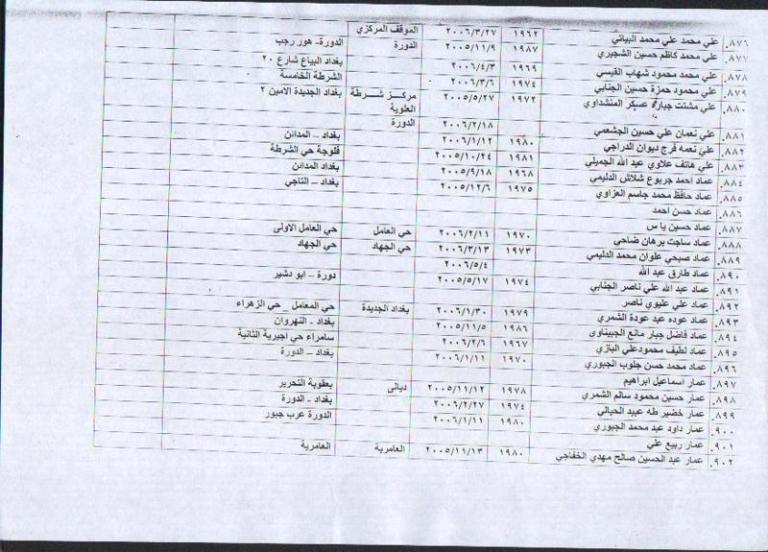 ٨٧٦. علي محمد علي محمد البياتي ١٩٦٢ ٢٠٠٦/٣/٢٧ الموقف المركزي
٨٧٧. علي محمد كاظم حسين الشجيري ١٩٨٧ ٢٠٠٥/١١/٩ الدورة الدورة- هور رجب
٨٧٨. علي محمد محمود شهاب القيسي ١٩٦٩ ٢٠٠٦/٤/٣ بغداد البياع شارع ٢٠
٨٧٩. علي محمود حمزة حسين الجنابي ١٩٧٤ ٢٠٠٦/٣/٦ الشرطة الخامسة
٨٨٠. علي مشتت جبارة عسكر المنشداوي ١٩٧٢ ٢٠٠٥/٥/٢٧ مركز شرطة العلوية بغداد الجديدة الامين ٢
٨٨١. علي نعمان علي حسين الجشعمي ٢٠٠٦/٢/١٨ الدورة
٨٨٢. علي نعمه فرج ديوان الدراجي ١٩٨٠ ٢٠٠٦/١/١٢ بغداد – المدائن
٨٨٣. علي هاتف علاوي عبد الله الجميلي ١٩٨١ ٢٠٠٥/١٠/٢٤ فلوجة حي الشرطة
٨٨٤. عماد احمد جربوع شلاش الدليمي ١٩٦٨ ٢٠٠٥/٩/١٨ بغداد المدائن
٨٨٥. عماد حافظ محمد جاسم العزاوي ١٩٧٥ ٢٠٠٥/١٢/٦ بغداد – التاجي
٨٨٦. عماد حسن احمد
٨٨٧. عماد حسين يا س
٨٨٨. عماد ساجت برهان ضاحي ١٩٧٠ ٢٠٠٦/٢/١١ حي العامل حي العامل الاولى
٨٨٩. عماد صبحي علوان محمد الدليمي ١٩٧٣ ٢٠٠٦/٣/١٣ حي الجهاد حي الجهاد
٨٩٠. عماد طارق عبد الله ٢٠٠٦/٥/٤
٨٩١. عماد عبد الله علي ناصر الجنابي ١٩٧٤ ٢٠٠٥/٥/١٧ دورة – ابو دشير
٨٩٢. عماد علي عليوي ناصر
٨٩٣. عماد عوده عبد عودة الشمري ١٩٧٩ ٢٠٠٦/١/٣٠ بغداد الجديدة حي المعامل _ حي الزهراء
٨٩٤. عماد فاضل جبار مانع الجبيناوي ١٩٨٦ ٢٠٠٥/١١/٥ بغداد - النهروان
٨٩٥. عماد لطيف محمودعلي البازي ١٩٦٧ ٢٠٠٦/٢/٦ سامراء حي اجيرية الثانية
٨٩٦. عماد محمد حسن جلوب الجبوري ١٩٧٠ ٢٠٠٦/١/١١ بغداد – الدورة
٨٩٧. عمار اسماعيل ابراهيم
٨٩٨. عمار حسين محمود سالم الشمري ١٩٧٨ ٢٠٠٥/١١/١٢ ديالى بعقوبة التحرير
٨٩٩. عمار خضير طه عبيد الحياني ١٩٧٤ ٢٠٠٦/٢/٢٧ بغداد - الدورة
٩٠٠. عمار داود عبد محمد الجبوري ١٩٨٠ ٢٠٠٦/١/١١ الدورة عرب جبور
٩٠١. عمار ربيع علي
٩٠٢. عمار عبد الحسين صالح مهدي الخفاجي ١٩٨٠ ٢٠٠٥/١١/١٣ العامرية العامرية